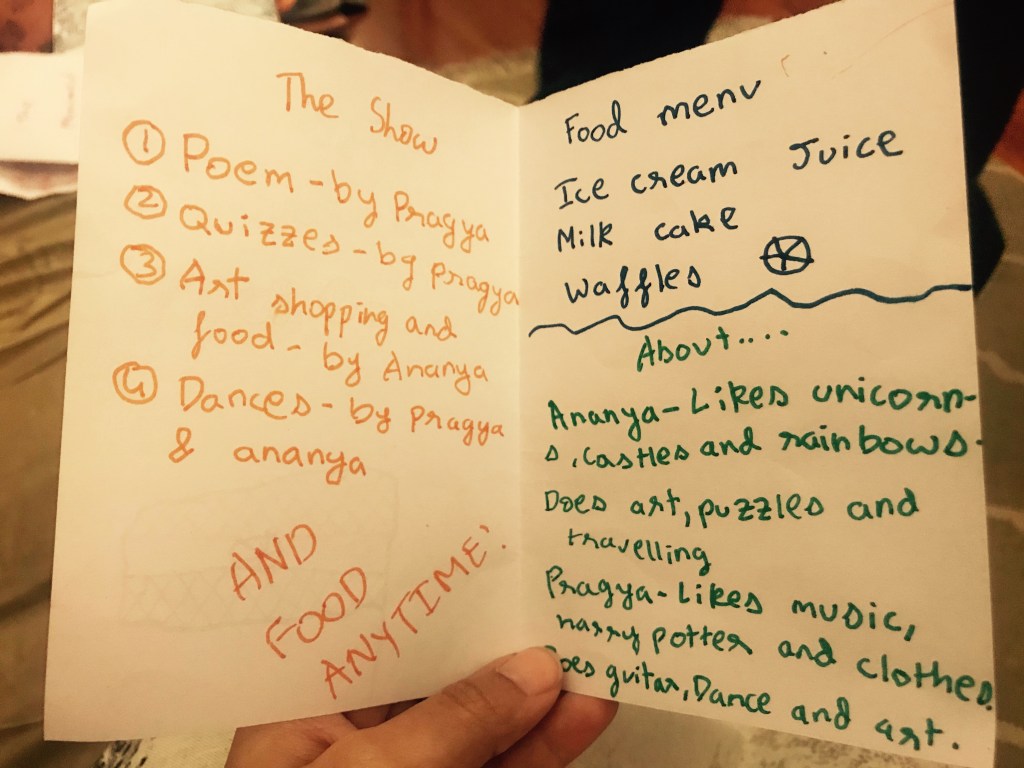 The Show
① Poem - by Pragya
② Quizzes - by pragya
③ Art shopping and
food - by Ananya
④ Dances - by pragya
& ananya
AND
FOOD
ANYTIME!
Food menu
Ice cream Juice
Milk cake
Waffles
About....
Ananya - Likes unicorn-
s, castles and rainbows.
Does art, puzzles and
travelling
Pragya - Likes music,
harry potter and clothes.
Does guitar, Dance and art.